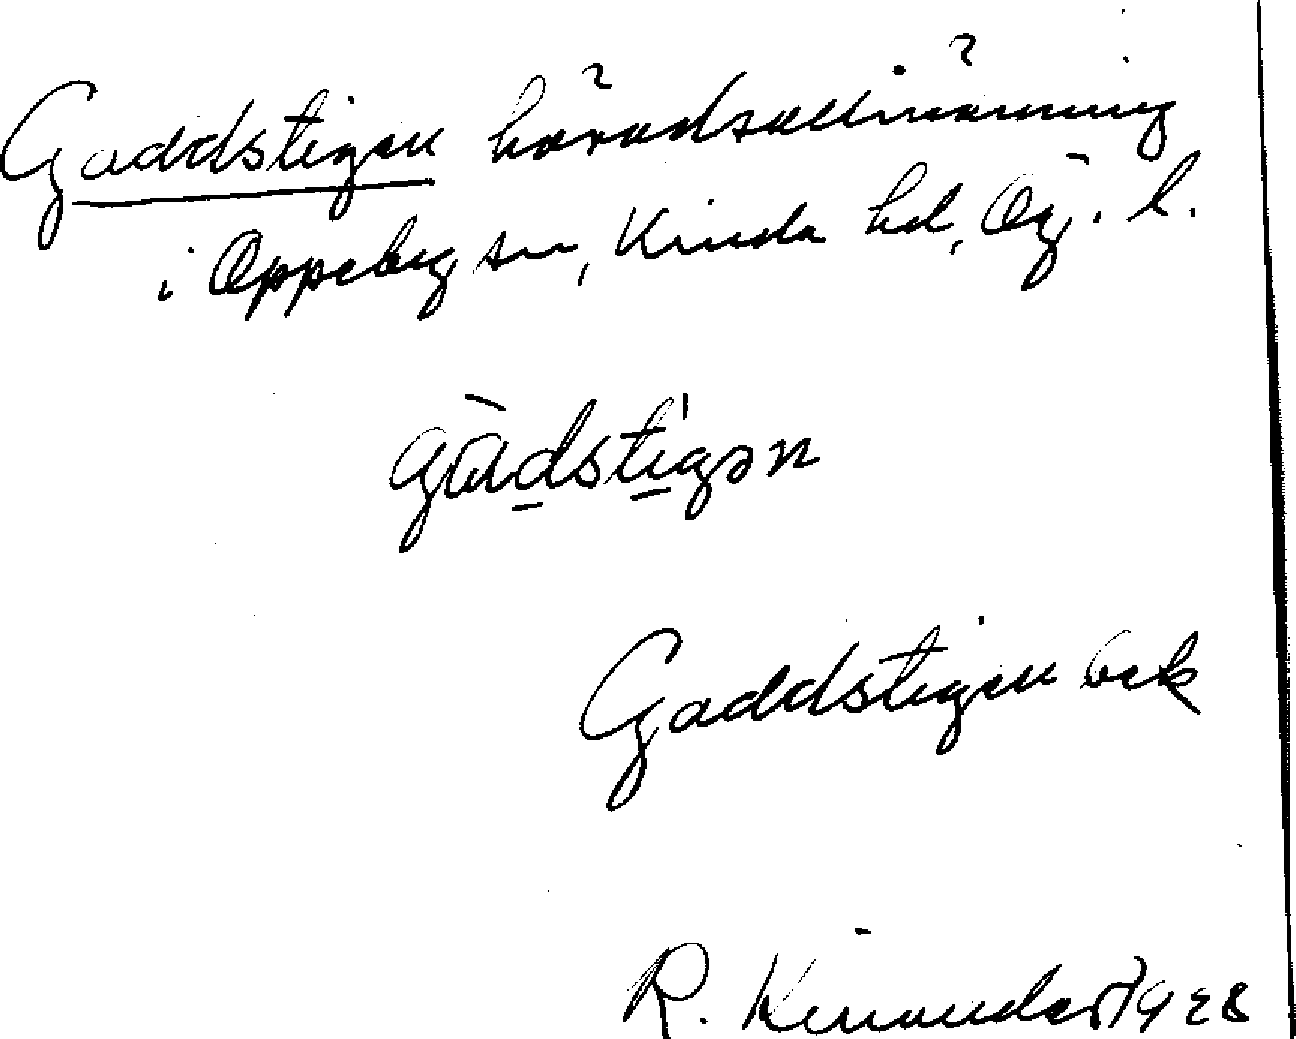 Gaddstigen häradsallmänning
i Oppeby sn, Kinda hd, Ög. l.
gàdstígən
Gaddstigen ek
R. Kinander 1928